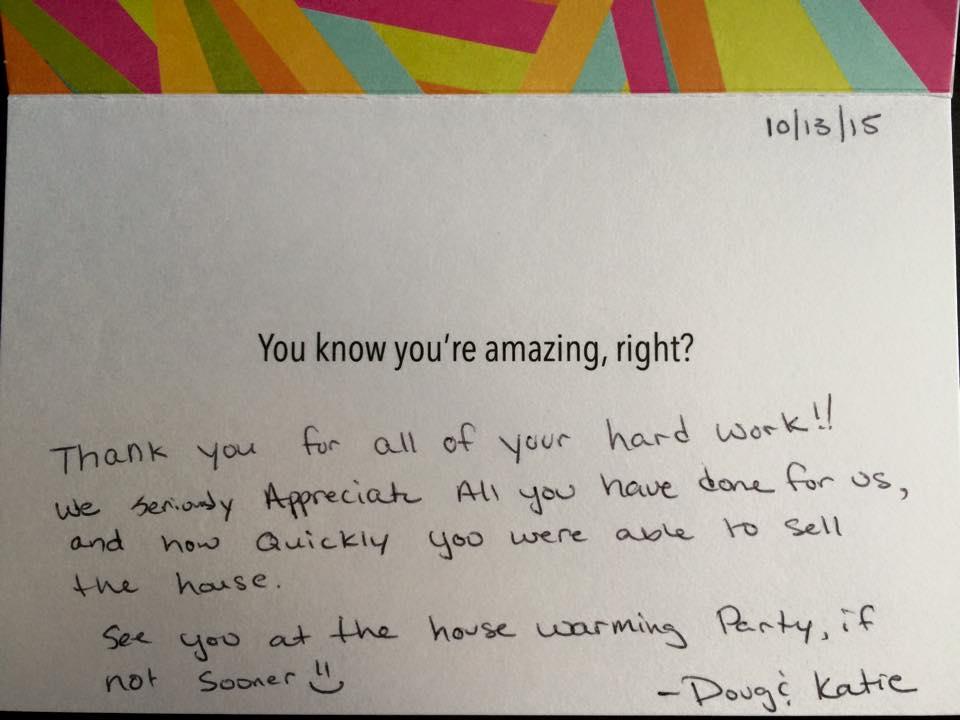 10/13/15
You know you're amazing, right?
Thank you for all of your hard work!!
We seriously Appreciate All you have done for us,
and how Quickly you were able to sell
the house.
See you at the house warming Party, if
not Sooner
-Doug & Katie